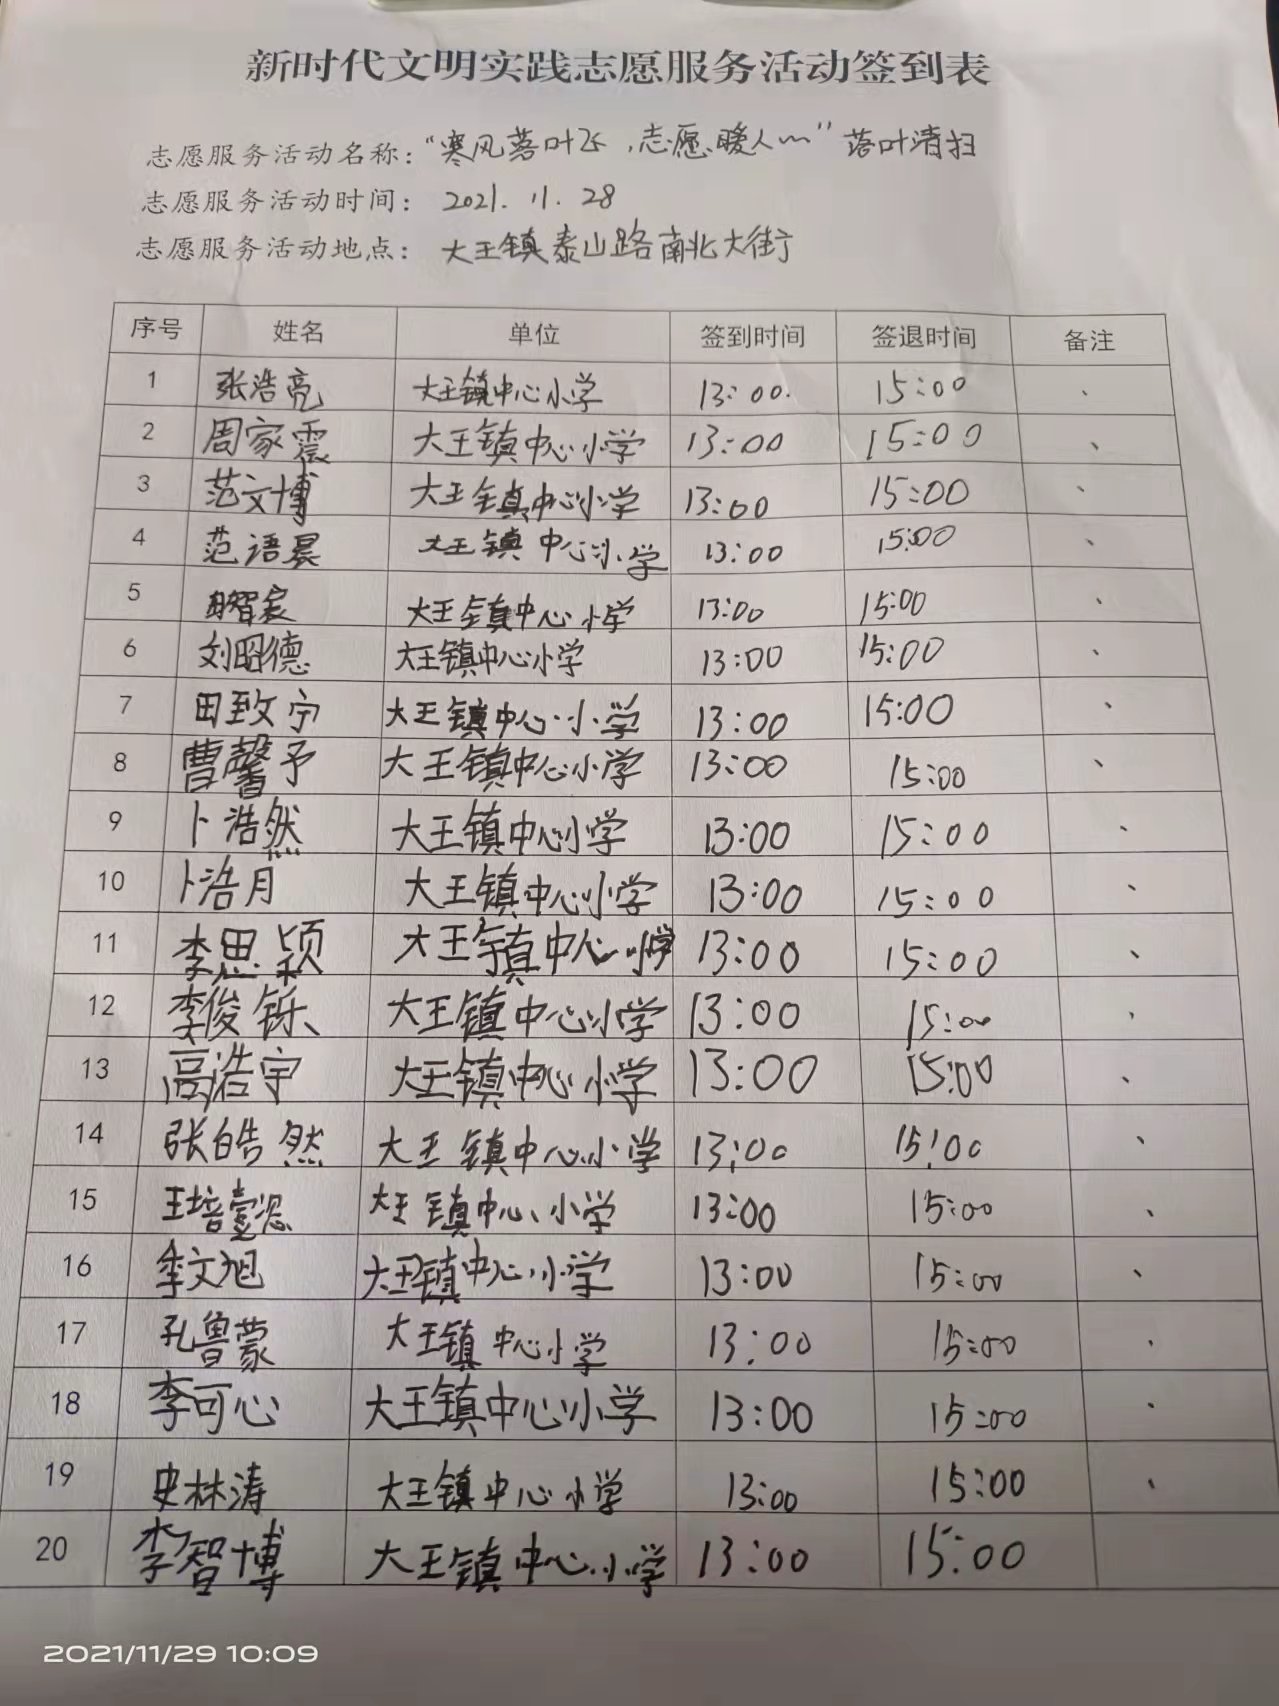 新时代文明实践志愿服务活动签到表
志愿服务活动名称："寒风落叶飞，志愿暖人心"落叶清扫
志愿服务活动时间： 2021.11.28
志愿服务活动地点： 大王镇泰山路南北大街
序号 姓名 单位 签到时间 签退时间 备注
1 张浩亮 大王镇中心小学 13:00. 15:00 、
2 周家震 大王镇中心小学 13:00 15:00 、
3 范文博 大王镇中心小学 13:00 15:00 、
4 范语晨 大王镇中心小学 13:00 15:00 、
5 大王镇中心小学 13:00 15:00 、
6 刘昭德 大王镇中心小学 13:00 15:00 、
7 田致宁 大王镇中心小学 13:00 15:00 、
8 曹馨予 大王镇中心小学 13:00 15:00 、
9 卜浩然 大王镇中心小学 13:00 15:00 、
10 卜浩月 大王镇中心小学 13:00 15:00 、
11 李思颖 大王镇中心小学 13:00 15:00 、
12 李俊铄 大王镇中心小学 13:00 15:00 、
13 高浩宇 大王镇中心小学 13:00 15:00 、
14 张皓然 大王镇中心小学 13:00 15:00 、
15 王培懿 大王镇中心小学 13:00 15:00 、
16 李文旭 大王镇中心小学 13:00 15:00 、
17 孔鲁蒙 大王镇中心小学 13:00 15:00 、
18 李可心 大王镇中心小学 13:00 15:00 、
19 史林涛 大王镇中心小学 13:00 15:00 、
20 李智博 大王镇中心小学 13:00 15:00
2021/11/29 10:09